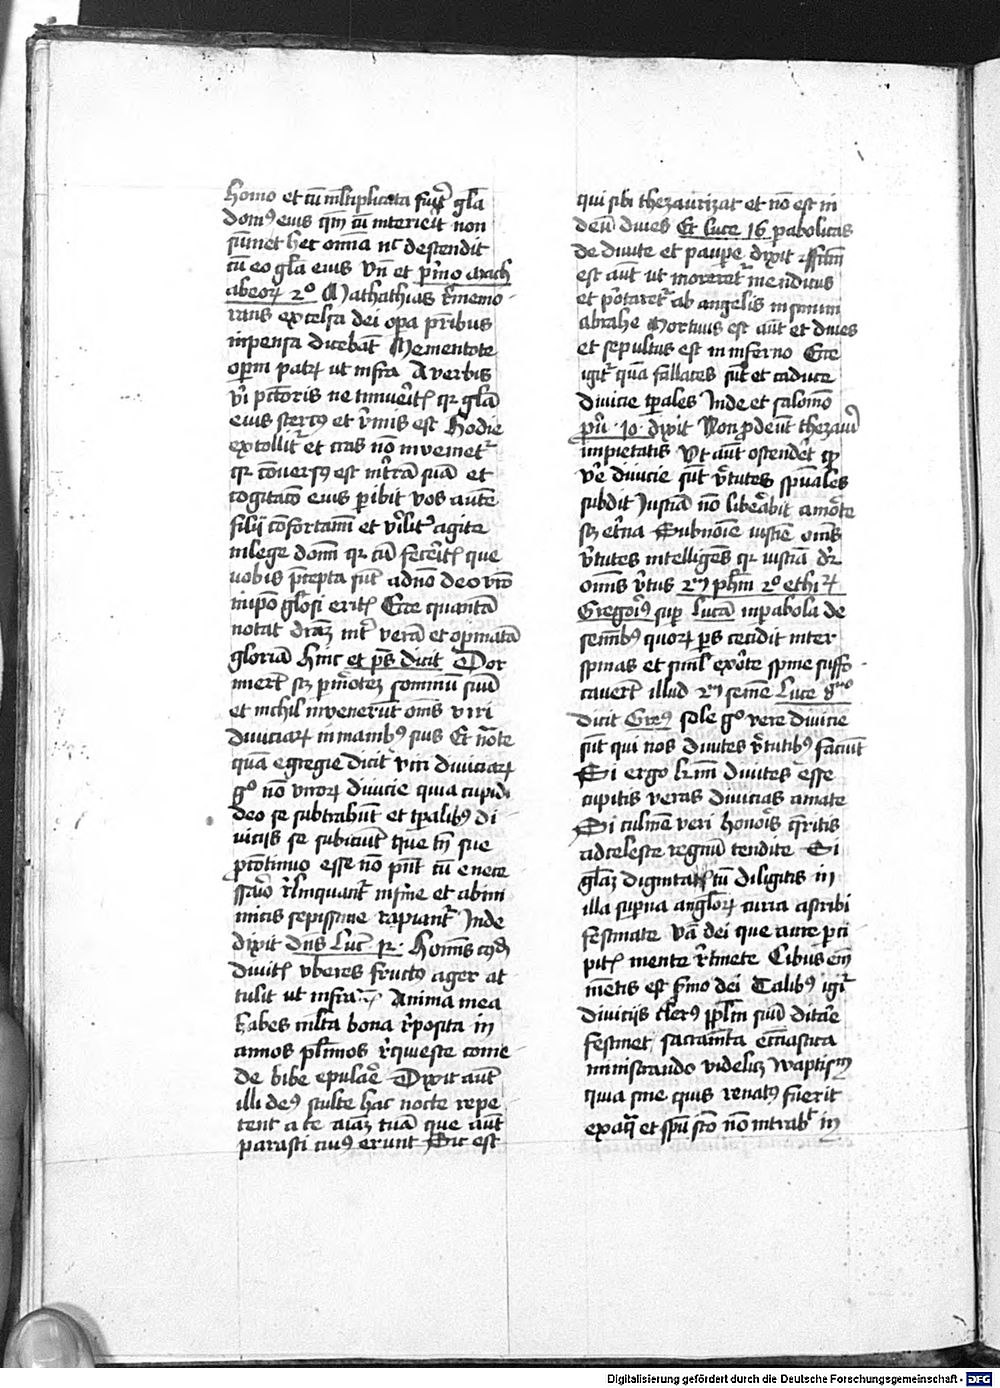 homo et cū ml̄tiplicata fuīt gl̄a
dom⁹ eius qm̄ cū interierit non
sūmet hec om̄ia nc̄ descendit
cū eo gl̄a eius Vn̄ et p̄mo mach
abeoꝝ 2º Mathathias r̄memo
rans excelsa dei oꝑa pr̄ibus
inpensa dicebat̄ Mementote
oꝑm patꝝ ut infra A verbis
vi͛ pctoris ne timuerit͛ qꝛ gl̄a
eius sterc⁹ et v̄mis est Hodie
extollit͛ et cras nō inveniet͛
qꝛ cōvers⁹ est in t̄rā suā et
cogitacō eius ꝑibit vos autē
filij cōfortamī et v̄ilit͛ agite
in lege domī qꝛ cū fecerit͛ que
uobis p̄cepta sūt a dnō deo vr̄o
in ipō gl̄osi erit͛ Ecce quantā
notat dr̄az int͛ verā et opinatā
gloriā hinc et ps̄ dicit Dor
mierūt sꝫ p̄mōtez sommū suū
et nichil invenerūt om̄s viri
diviciaꝝ in manib⁹ suis Et n̄ote
quā egregie dicit viri diviciaꝝ
gº nō viroꝝ divicie quia cupidi
deo se subtrahūt et tꝑalib⁹ di
vicijs se subiciūt que tn̄ sue
ꝓ̄cōtinuo esse nō pn̄t cū e nece
ssāio r̄linquant̄ in fine et ab ini
micis sepissime rapiant͛ Inde
dixit dn̄s Luc̄ 12 · Hom̄is cꝯd̄
divit͛ vberes fruct⁹ ager at
tulit ut infra Anima mea
habes ml̄ta bona r̄posita in
annos pl̄imos r̄quiesce come
de bibe epulāe Dixit aūt
illi de⁹ stulte hac nocte repe
tent a te aīaz tuā que aūt
parasti cui⁹ erunt Sic est
qui sibi thezaurizat et nō est in
deū dives Et luce 16 parabolicas
de divite et paupe dixit
est aūt ut moreret͛ mendicus
et portaret͛ ab angelis in sinum
abrahe Mortuus est aūt et dives
et sepultus est in inferno Ecce
igit͛ quā fallaces sūt et caduce
divicie tꝑales Inde et salomō
pr̄u · 10 · dixit Non ꝓdeūt thezauī
impietatis Vt aūt ostendēt qꝫ
ve͛ divicie sūt v̄tutes sp̄uales
subdit Justicīa nō libeābit a mōte
sꝫ et̄na Sub noīe iusticīe om̄s
v̄tutes intelligēs qꝛ iusticīa dr̄
om̄is v̄tus 2ᵐ ph̄m 2º ethiꝝ
Gregori⁹ suꝑ lucā in ꝑabola de
semīb⁹ quoꝝ ꝑs cecidit inter
spinas et simul exōte spine suffo
caverūt illud 2ᵐ semē Luce 8ᵛᵒ
dicit Gre⁹ sole gº vere divicie
sūt qui nos divites v̄tutib⁹ faciūt
Si ergo kr̄mī divites esse
cupitis veras divicias amate
Si culmē veri honoīs q̄ritis
ad celeste regnū tendite Si
gl̄az dignitatū diligitis in
illa suꝑna angl̄oꝝ curia ascribi
festinate Vā dei que aure ꝑci
pit͛ mente r̄tinete Cibus em̄
mētis est s̄mo dei Talib⁹ igit͛
divicijs cler⁹ ppl̄m suū ditāe
festinet sacram̄ta eccīastica
ministrando videlicꝫ Waptism
quia sine quis renat⁹ fuerit
ex aq̄ et spū sc̄o nō intrabit in